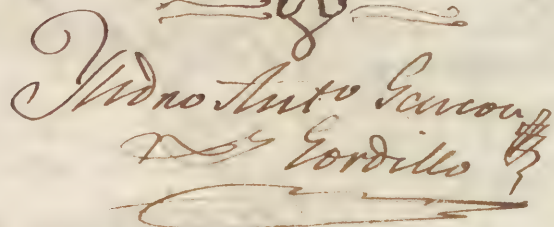 Ysidro Anto Garcon
Gordillo